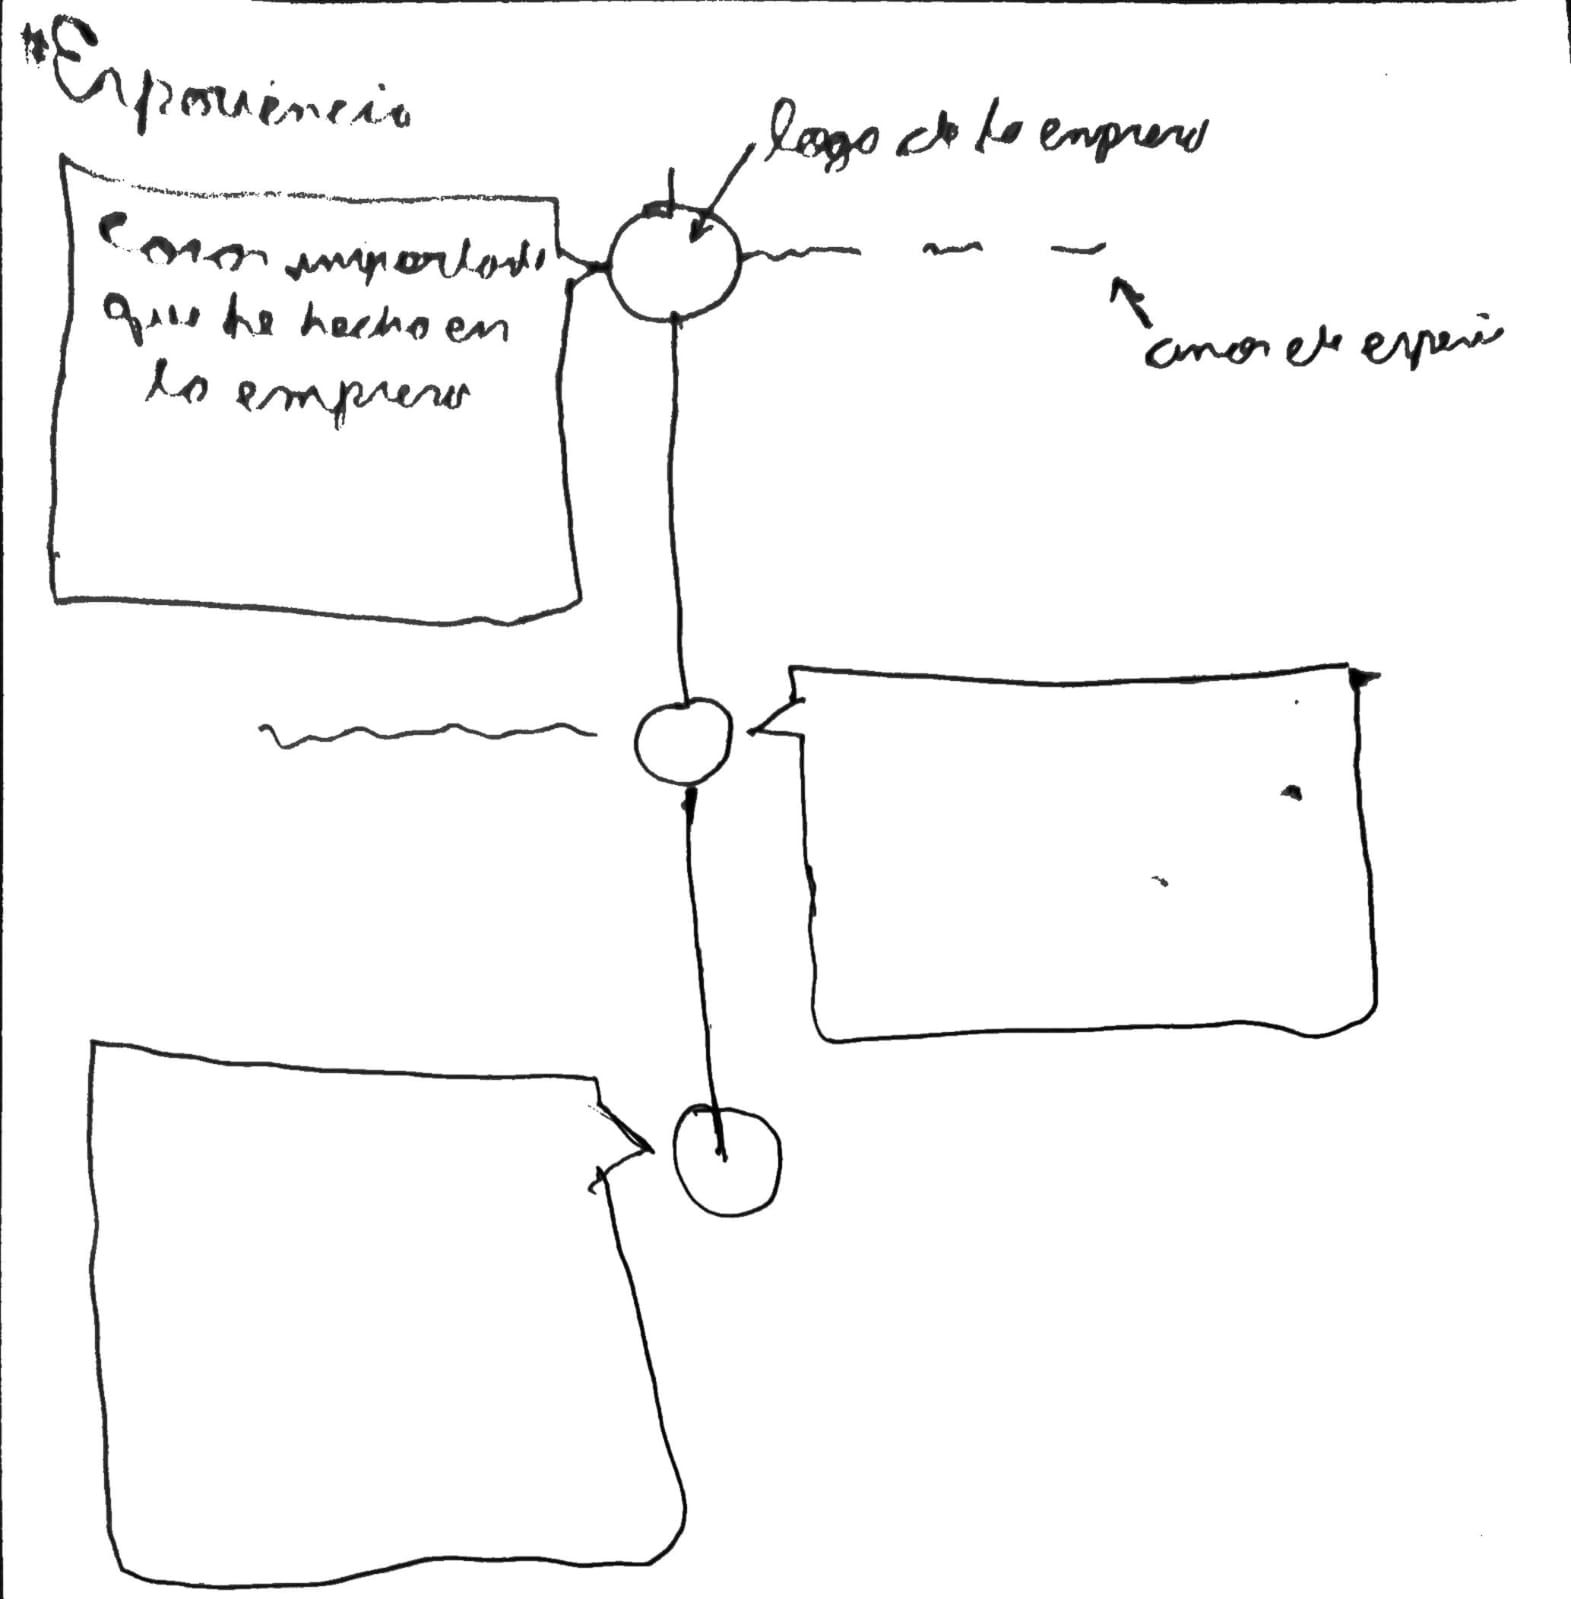 *Experiencia
logo de la empresa
Cosas importantes
que he hecho en
la empresa
años de experi